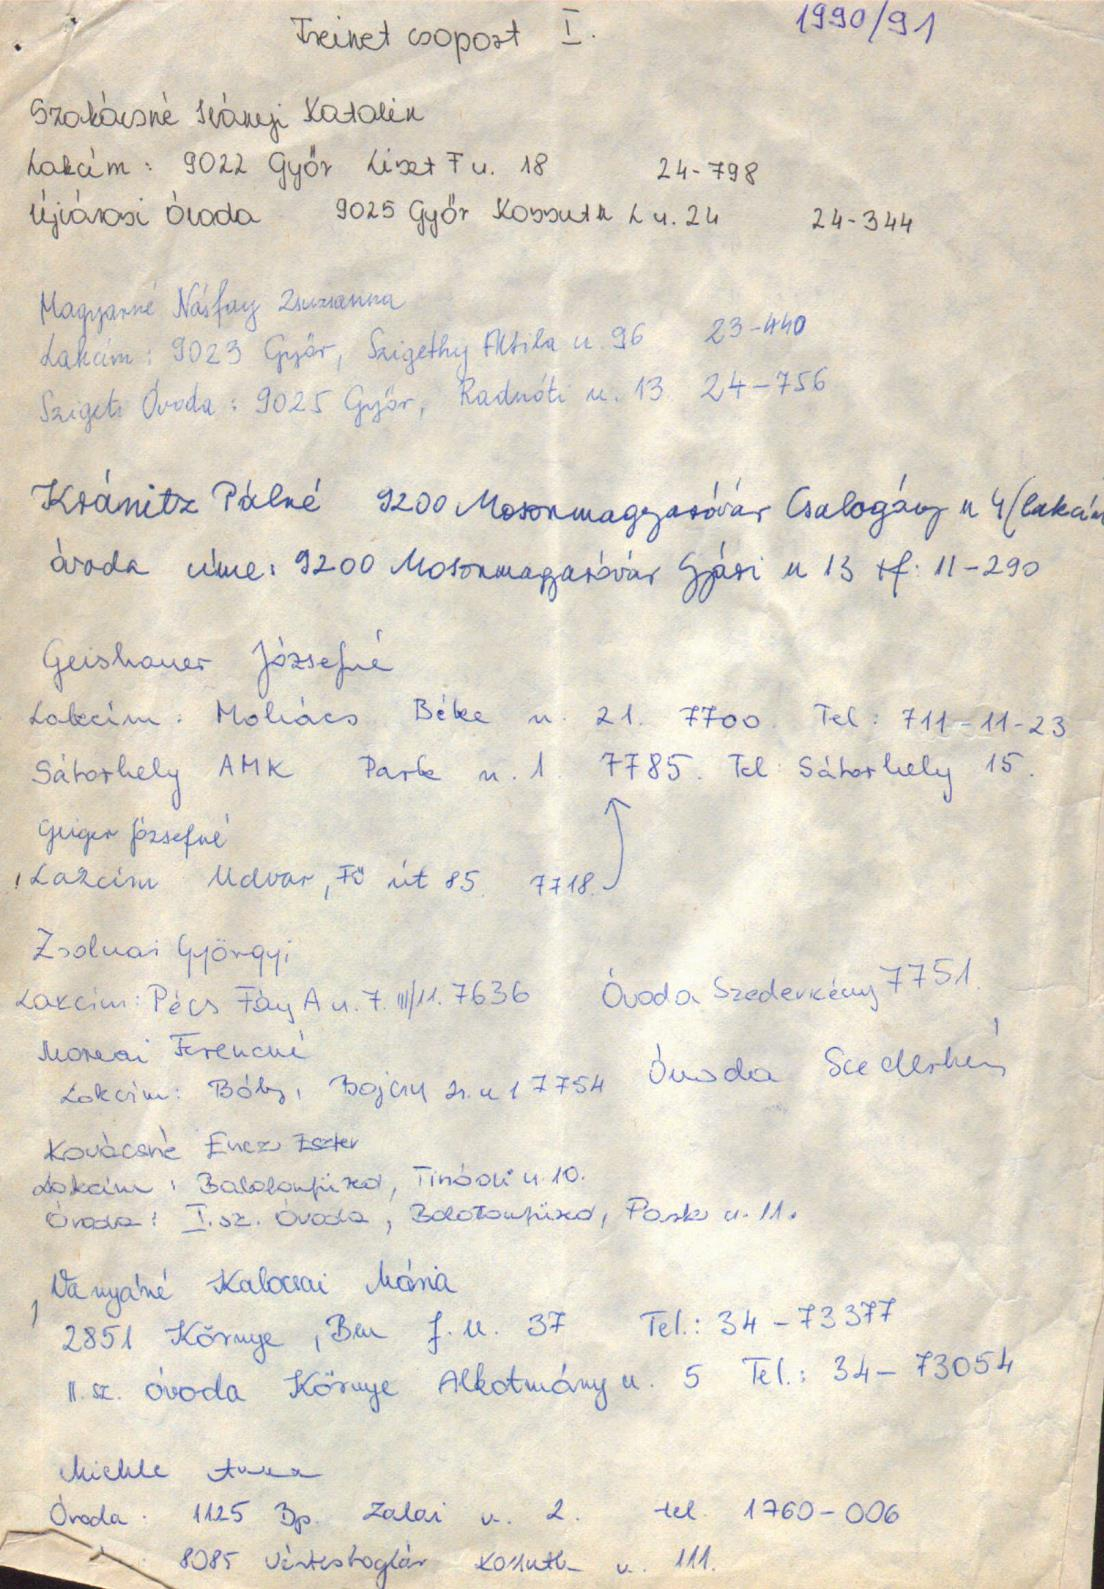 Freinet csoport I. 1990/91
Szakácsné Iványi Katalin
Lakcím: 9022 Győr Liszt F u. 18 24-798
Újvárosi Óvoda 9025 Győr Kossuth L u. 24 24-344
Magyarné Násfay Zsuzsanna
Lakcím: 9023 Győr, Szigethy Attila u. 96 23-440
Szigeti Óvoda: 9025 Győr, Radnóti u. 13 24-756
Kránitz Pálné 9200 Mosonmagyaróvár Csalogány u 4 (lakcím
óvoda címe: 9200 Mosonmagyaróvár Gyári u 13 tf: 11-290
Geishauer Józsefné
Lakcím: Mohács Béke u. 21. 7700. Tel: 711-11-23
Sátorhely AMK Park u. 1 7785. Tel Sátorhely 15.
Geiger Józsefné
Lakcím Udvar, Fő út 85. 7718.
Zsolnai Györgyi
Lakcím: Pécs Fáy A u. 7. III/11. 7636 Óvoda Szederkény 7751.
Ferencné Óvoda
Lakcím: Bóly, u 1 7754
Kovácsné Encz Eszter
Lakcím: Balatonfüred, Tinódi u. 10.
Óvoda: I. sz. Óvoda, Balatonfüred, Park u. 11.
Ványáné Kalocsai Mária
2851 Környe, Bem J. u. 37 Tel.: 34-73377
II. sz. óvoda Környe Alkotmány u. 5 Tel.: 34-73054
Michle Anna
Óvoda: 1125 Bp. Zalai u. 2. tel. 1760-006
8085 Vértesboglár Kossuth u. 111.